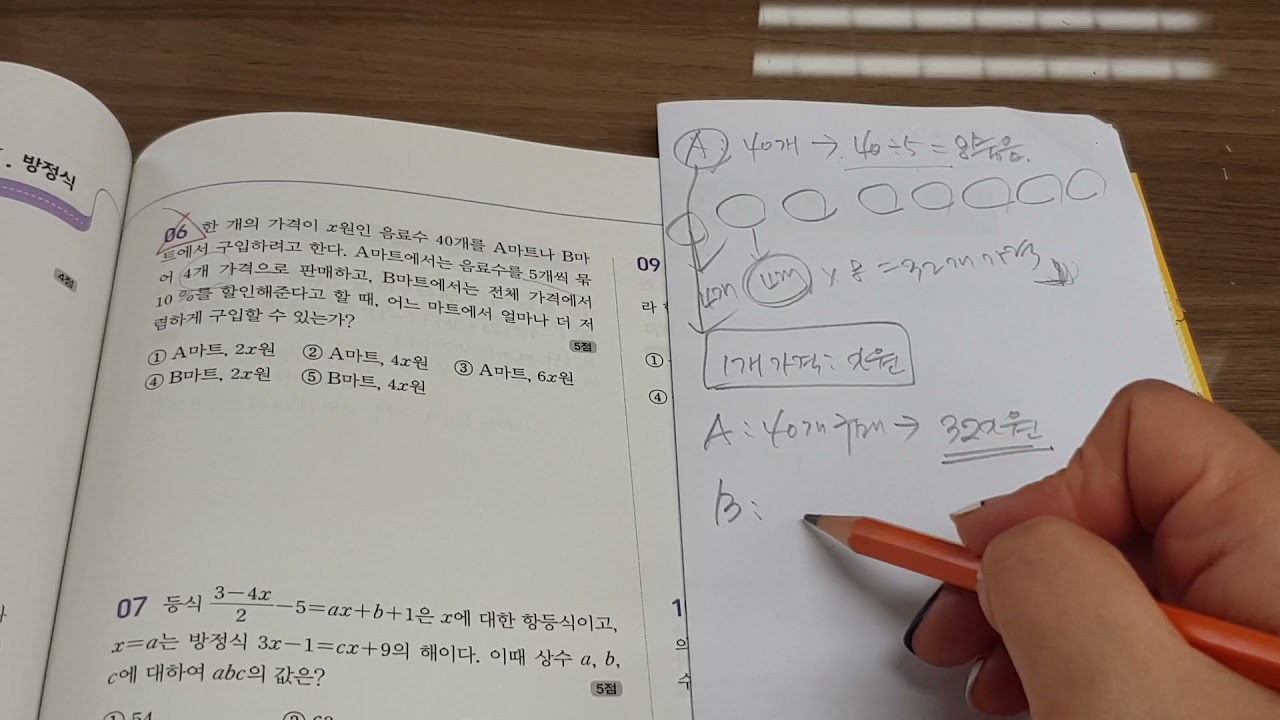 . 방정식
4점
06 한 개의 가격이 x원인 음료수 40개를 A마트나 B마
트에서 구입하려고 한다. A마트에서는 음료수를 5개씩 묶
어 4개 가격으로 판매하고, B마트에서는 전체 가격에서
10 %를 할인해준다고 할 때, 어느 마트에서 얼마나 더 저
렴하게 구입할 수 있는가?
5점
① A마트, 2x원 ② A마트, 4x원 ③ A마트, 6x원
④ B마트, 2x원 ⑤ B마트, 4x원
07 등식 (3-4x)/2-5=ax+b+1은 x에 대한 항등식이고,
x=a는 방정식 3x-1=cx+9의 해이다. 이때 상수 a, b,
c에 대하여 abc의 값은?
5점
① 54
09
라
①
④
1
의
수
A: 40개 → 40÷5=8묶음.
4개 4개 ×8=32개 가격
1개 가격: x원
A: 40개 구매 → 32x원
B: